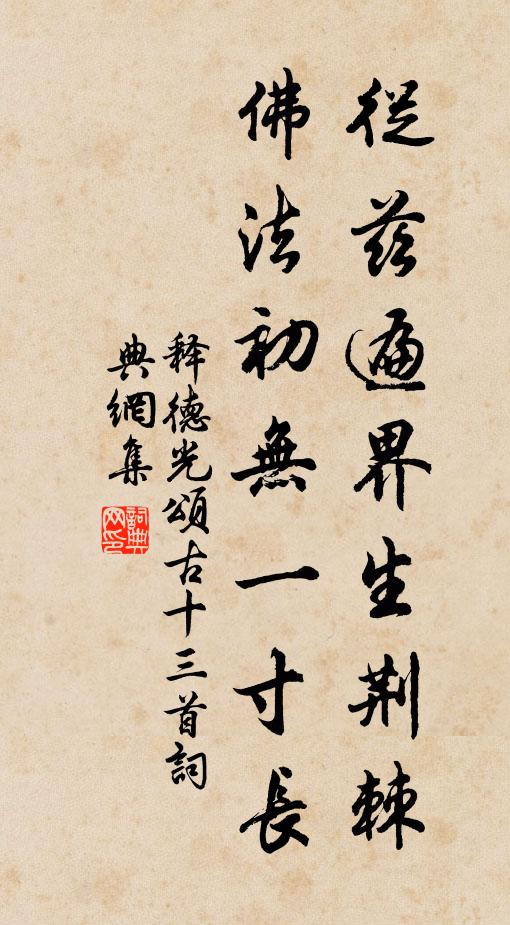 從茲遍界生荆棘
佛法初無一寸長
释德光頌古十三首詞
典網集
詞典网印